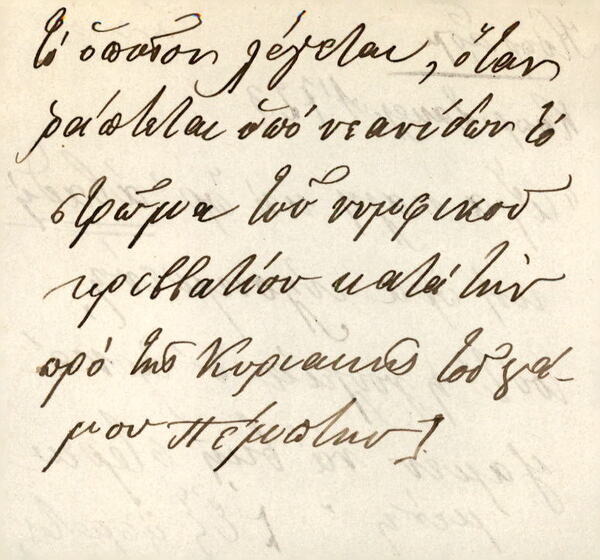 τὸ ὁποῖον λέγεται, ὅταν
ράπτεται ὑπό νεανίδων τὸ
στρῶμα τοῦ νυμφικοῦ
κρεββατίου κατά τὴν
πρό τῆς Κυριακῆς τοῦ γά-
μου Πέμπτην]